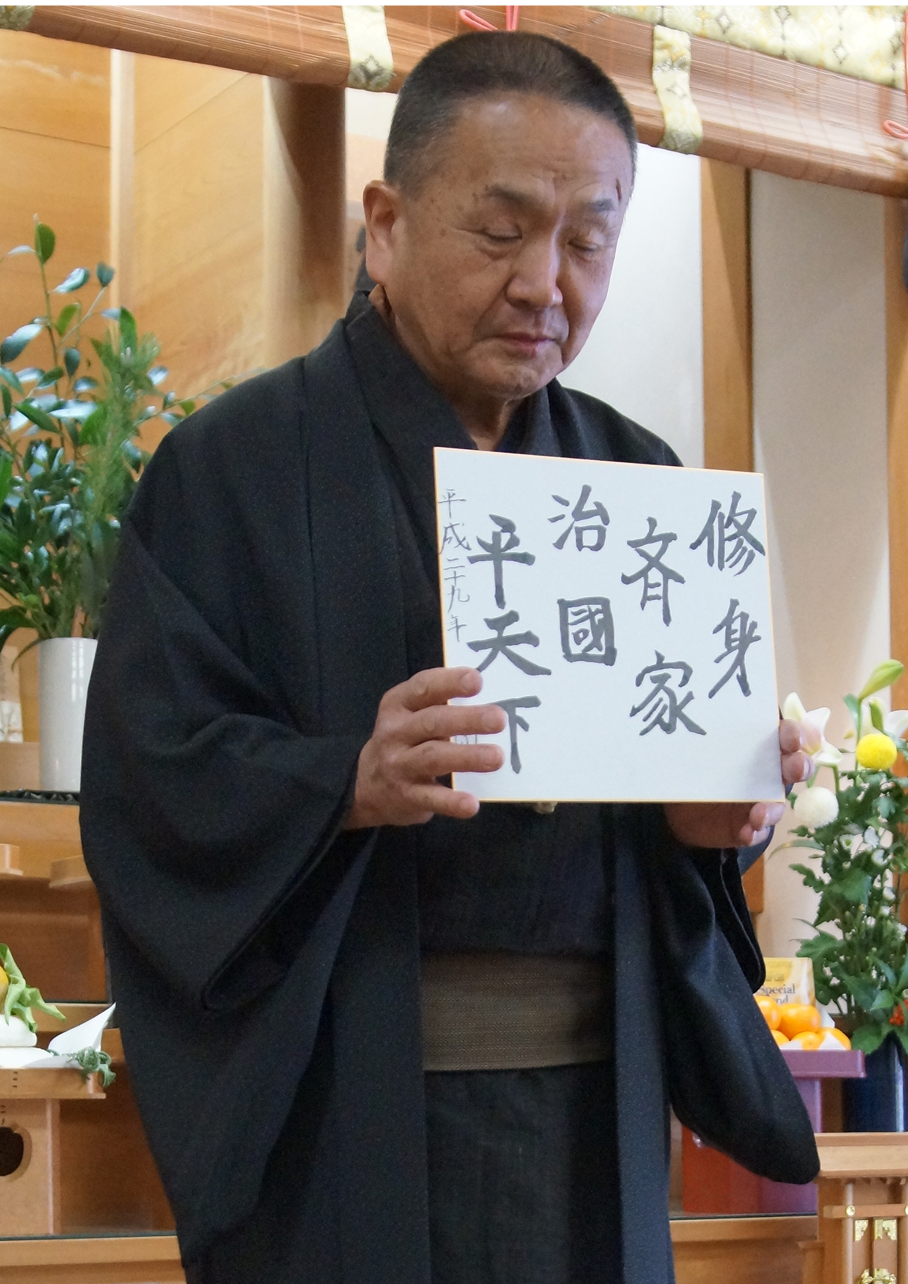 修身
斉家
治國
平天下
平成二十九年
Special